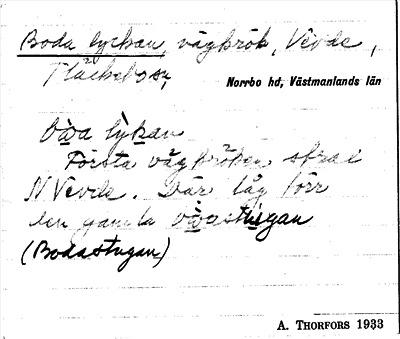 Boda lyckan, vägkrök, Vevde,
Fläckebo sn,
Norrbo hd, Västmanlands län
lykan
Första vägkröken strax
N Vevde. Där låg förr
den gamla stugan
(Bodastugan)
A. THORFORS 1933